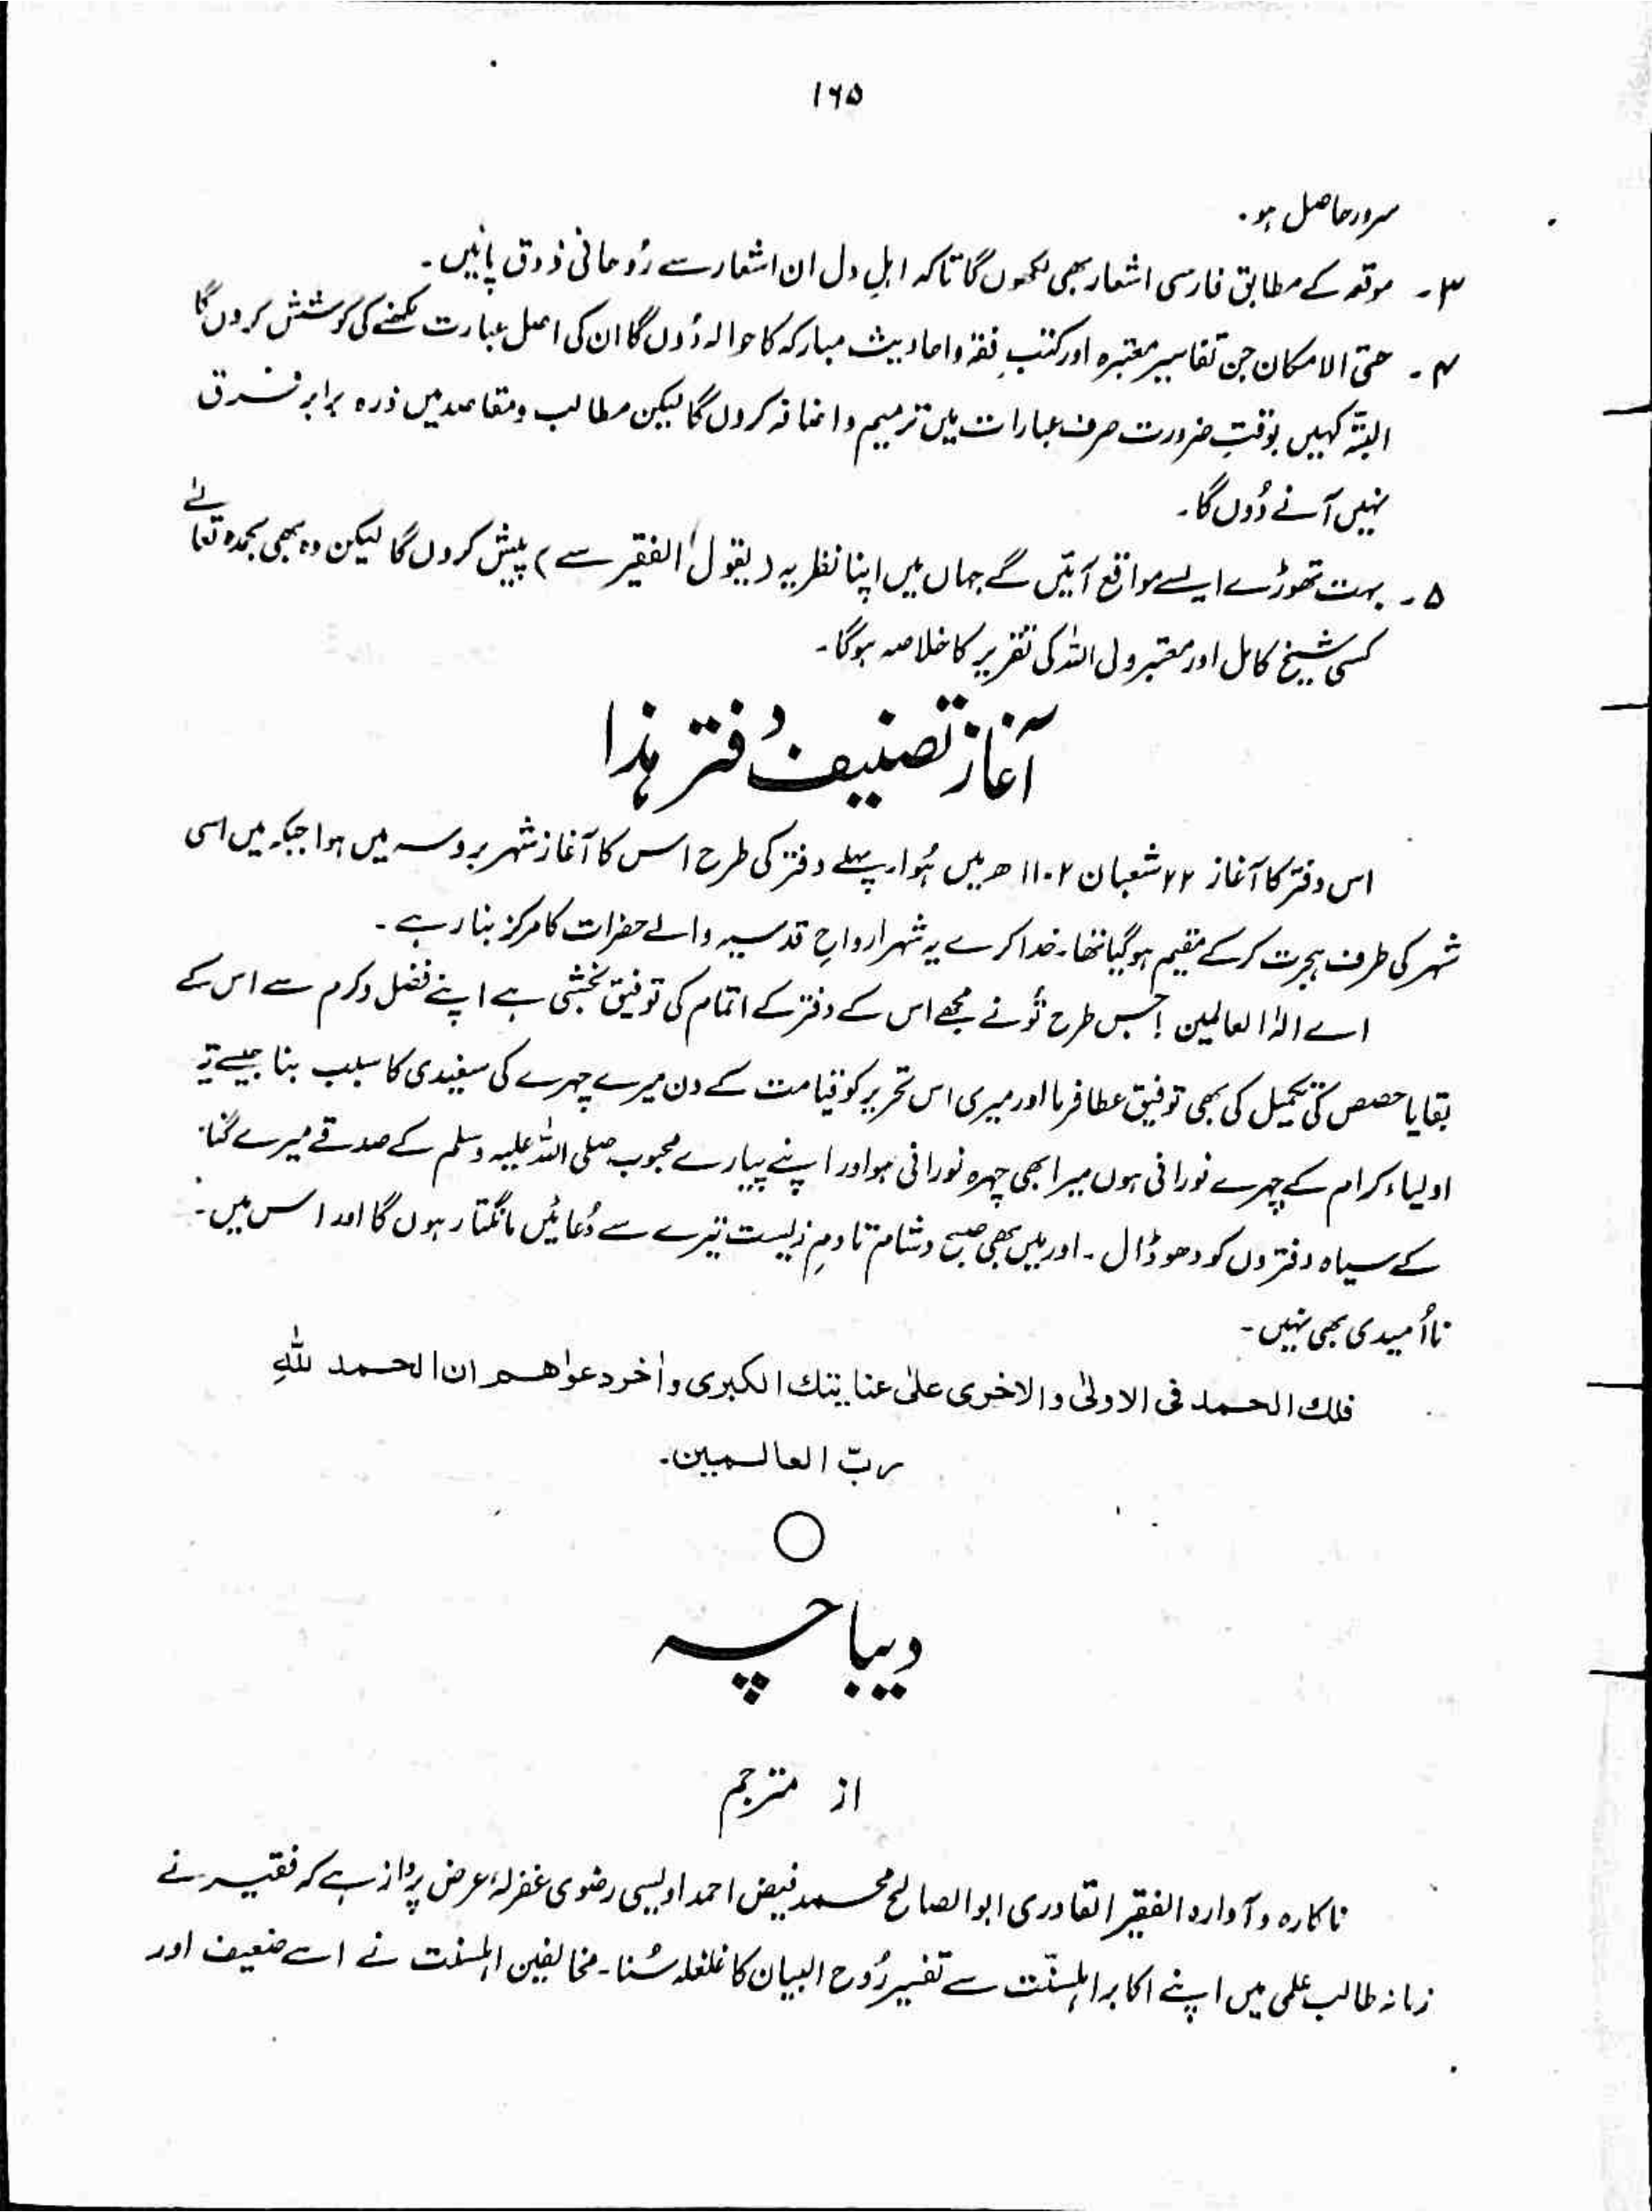 ۱۶۵
سرور حاصل ہو۔
۳۔ موقعہ کے مطابق فارسی اشعار بھی لکھوں گا تاکہ اہلِ دل ان اشعار سے رُوحانی ذوق پائیں۔
۴۔ حتی الامکان جن تفاسیر معتبرہ اور کتبِ فقہ و احادیث مبارکہ کا حوالہ دُوں گا ان کی اصل عبارت لکھنے کی کوشش کروں گا
البتہ کہیں بوقتِ ضرورت صرف عبارات میں ترمیم و اضافہ کروں گا لیکن مطالب و مقاصد میں ذرہ برابر فرق
نہیں آنے دُوں گا۔
۵۔ بہت تھوڑے ایسے مواقع آئیں گے جہاں میں اپنا نظریہ (یقول الفقیر سے) پیش کروں گا لیکن وہ بھی بحمدہ تعالےٰ
کسی شیخ کامل اور معتبر ولی اللہ کی تقریر کا خلاصہ ہوگا۔
آغاز تصنیف دفتر ہذا
اس دفتر کا آغاز ۲۲ شعبان ۱۱۰۲ھ میں ہُوا۔ پہلے دفتر کی طرح اس کا آغاز شہر بروسہ میں ہوا جبکہ میں اسی
شہر کی طرف ہجرت کر کے مقیم ہو گیا تھا۔ خدا کرے یہ شہر ارواحِ قدسیہ والے حضرات کا مرکز بنا رہے۔
اے الٰہ العالمین! جس طرح تُو نے مجھے اس کے دفتر کے اتمام کی توفیق بخشی ہے اپنے فضل و کرم سے اس کے
بقایا حصص کی تکمیل کی بھی توفیق عطا فرما اور میری اس تحریر کو قیامت کے دن میرے چہرے کی سفیدی کا سبب بنا جیسے تیرے
اولیاء کرام کے چہرے نورانی ہوں میرا بھی چہرہ نورانی ہو اور اپنے پیارے محبوب صلی اللہ علیہ وسلم کے صدقے میرے گناہ
کے سیاہ دفتروں کو دھو ڈال۔ اور میں بھی صبح و شام تا دمِ زیست تیرے سے دُعائیں مانگتا رہوں گا اور اس میں
نااُمیدی بھی نہیں۔
فلك الحمد فی الاولیٰ والاخری علیٰ عنایتك الكبری واٰخر دعواهم ان الحمد للّٰهِ
ربّ العالمین۔
دیباچہ
از مترجم
ناکارہ و آوارہ الفقیر القادری ابو الصالح محمد فیض احمد اویسی رضوی غفرلہٗ عرض پرداز ہے کہ فقیر نے
زمانہ طالب علمی میں اپنے اکابر اہلسنّت سے تفسیر رُوح البیان کا غلغلہ سُنا۔ مخالفین اہلسنت نے اسے ضعیف اور